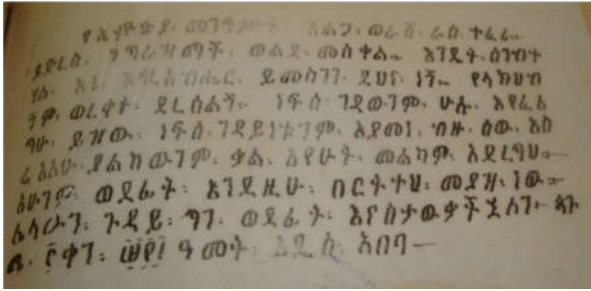 የኢትዮጵያ፡ መንግሥት፡ አልጋ፡ ወራሽ፡ ራስ፡ ተፈሪ።
ይድረስ፡ ከግራዝማች፡ ወልደ፡ መስቀል። እንዴት፡ ሰንብተ
ሃል፡ እኔ፡ እግዚአብሔር፡ ይመስገን፡ ደህና፡ ነኝ። የላክህል
ኝም፡ ወረቀት፡ ደረሰልኝ። ነፍሰ፡ ገዳውንም፡ ሁሉ፡ እየፈለ
ግህ፡ ይዝው፡ ነፍሰ፡ ገዳይነቱንም፡ እያመነ፡ ብዙ፡ ሰው፡ አስ
ሬአለሁ፡ ያልከውንም፡ ቃል፡ አየሁት፡ መልካም፡ አደረግህ።
አሁንም፡ ወደፊት፡ እንደዚሁ፡ በርትተህ፡ መያዝ፡ ነው።
ሌላውን፡ ጉዳይ፡ ግን፡ ወደፊት፡ እናስታውቃችኂለን። ጳጉ
ሜ፡ ዓመት፡ አዲስ፡ አበባ—